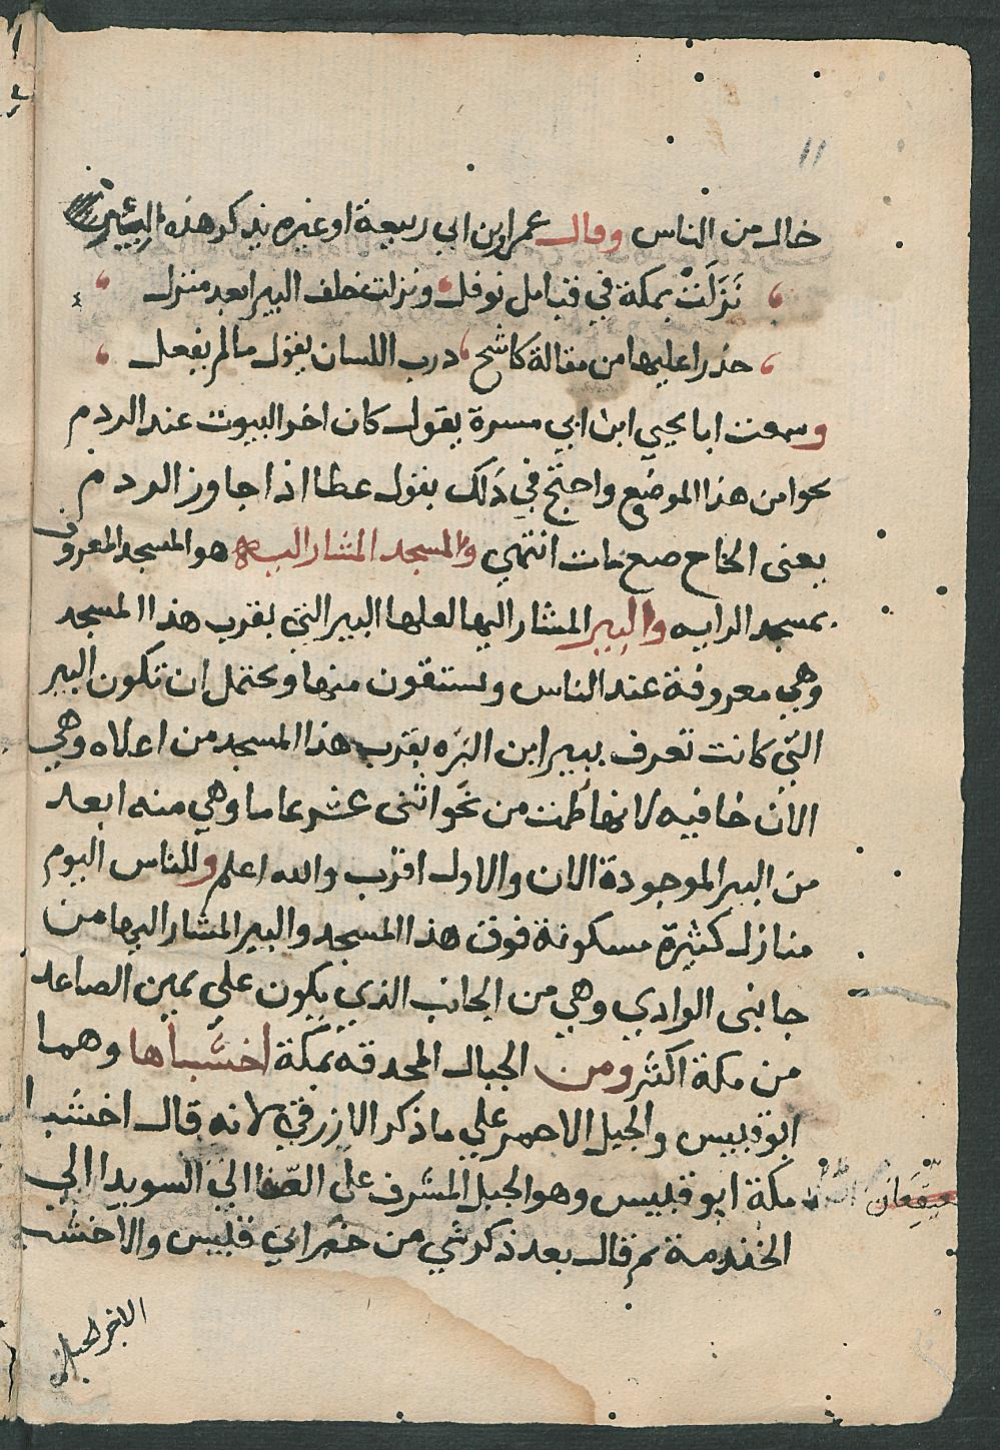 ١١
خال من الناس وقال عمر ابن ابي ربيعة او غيره يذكر هذه البئر
نَزَلَتْ بمكة في قبايل نوفل ونزلت خلف البير ابعد منزل
حذرا عليها من مقالة كاشح درب اللسان يقول ما لم يفعل
وسمعت ابا يحيي ابن ابي مسرة يقول كان اخر البيوت عند الردم
نحوا من هذا الموضع واحتج في ذلك بقول عطا اذا جاوز الردم
يعنى الحاج صنع مات انتهي والمسجد المشار اليه هو المسجد المعروف
بمسجد الرايه والبير المشار اليها لعلها البير التي بقرب هذا المسجد
وهي معروفة عند الناس ويستقون منها ويحتمل ان تكون البير
التي كانت تعرف ببير ابن البزه بقرب هذا المسجد من اعلاه وهي
الان خافيه لانها طمت من نحو اثنى عشر عاما وهي منه ابعد
من البير الموجودة الان والاول اقرب والله اعلم وللناس اليوم
منازل كثيرة مسكونة فوق هذا المسجد والبير المشار اليها من
جانبى الوادي وهي من الجانب الذي يكون علي يمين الصاعد
من مكة اكثر ومن الجبال المحدقه بمكة اخشباها وهما
ابو قبيس والجبل الاحمر علي ما ذكر الازرقي لانه قال اخشبا
مكة ابو قبيس وهو الجبل المشرف على الصفا الي السويدا الي
الخندمة ثم قال بعد ذكر شي من خبر ابي قبيس والاخشب
قعيقعان
الاخر الجبل